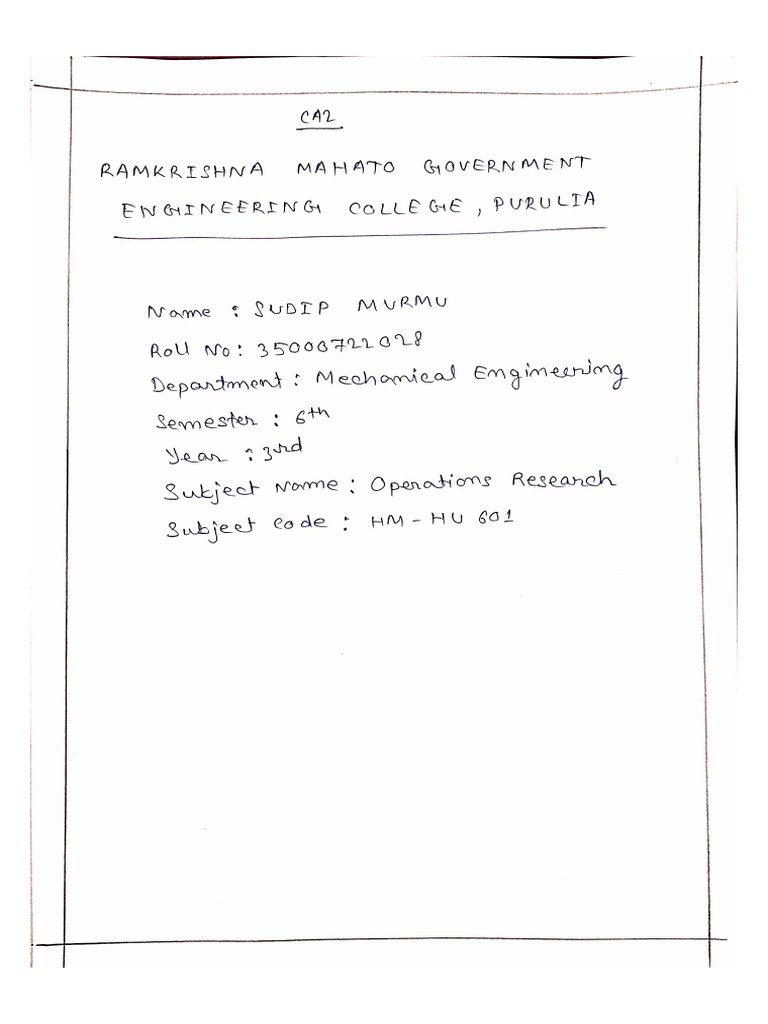 CA2
RAMKRISHNA MAHATO GOVERNMENT
ENGINEERING COLLEGE, PURULIA
Name : SUDIP MURMU
Roll No: 35000722028
Department : Mechanical Engineering
Semester : 6th
Year : 3rd
Subject Name : Operations Research
Subject Code : HM-HU 601